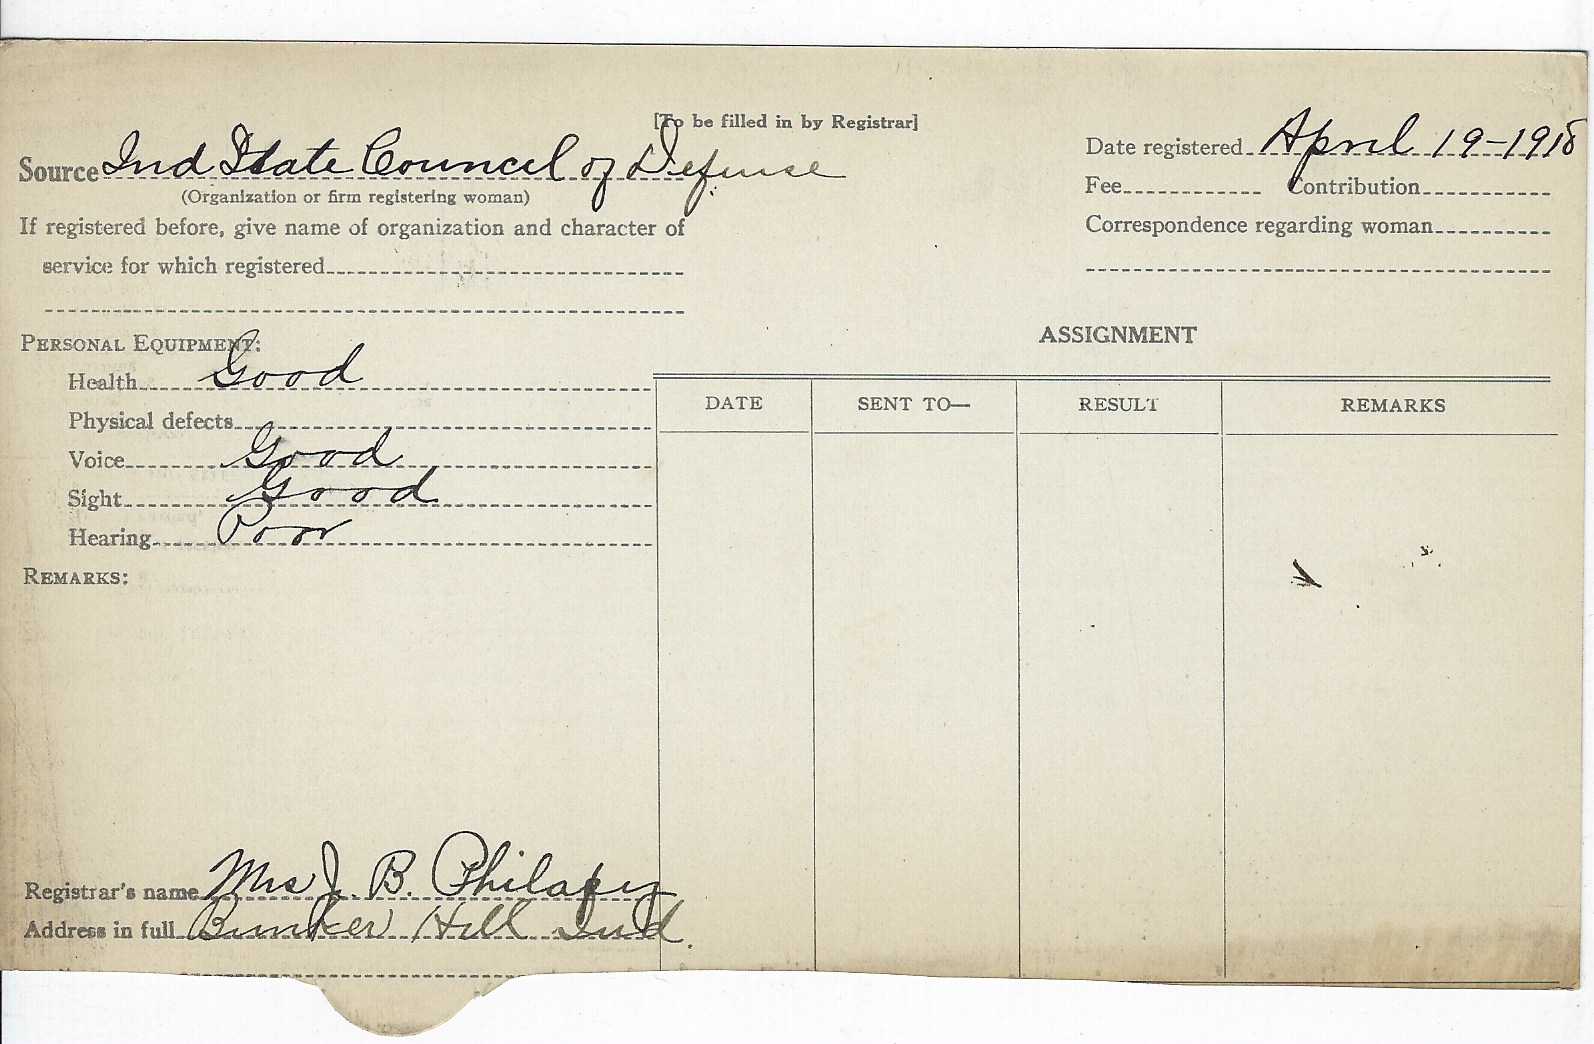 [To be filled in by Registrar]
Source Ind State Council of Defense
(Organization or firm registering woman)
If registered before, give name of organization and character of
service for which registered
Date registered April 19-1918
Fee Contribution
Correspondence regarding woman
PERSONAL EQUIPMENT:
Health Good
Physical defects
Voice Good
Sight Good
Hearing Poor
REMARKS:
ASSIGNMENT
DATE SENT TO— RESULT REMARKS
Registrar's name Mrs J. B.
Address in full Bunker Hill Ind.